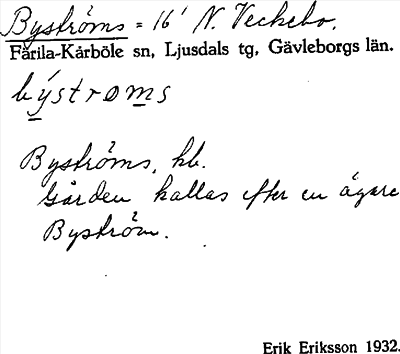 Byströms = 16' N. Veckebo.
Färila-Kårböle sn, Ljusdals tg, Gävleborgs län.
býstroms
Byströms, hb.
Gården kallas efter en ägare
Byström.
Erik Eriksson 1932.